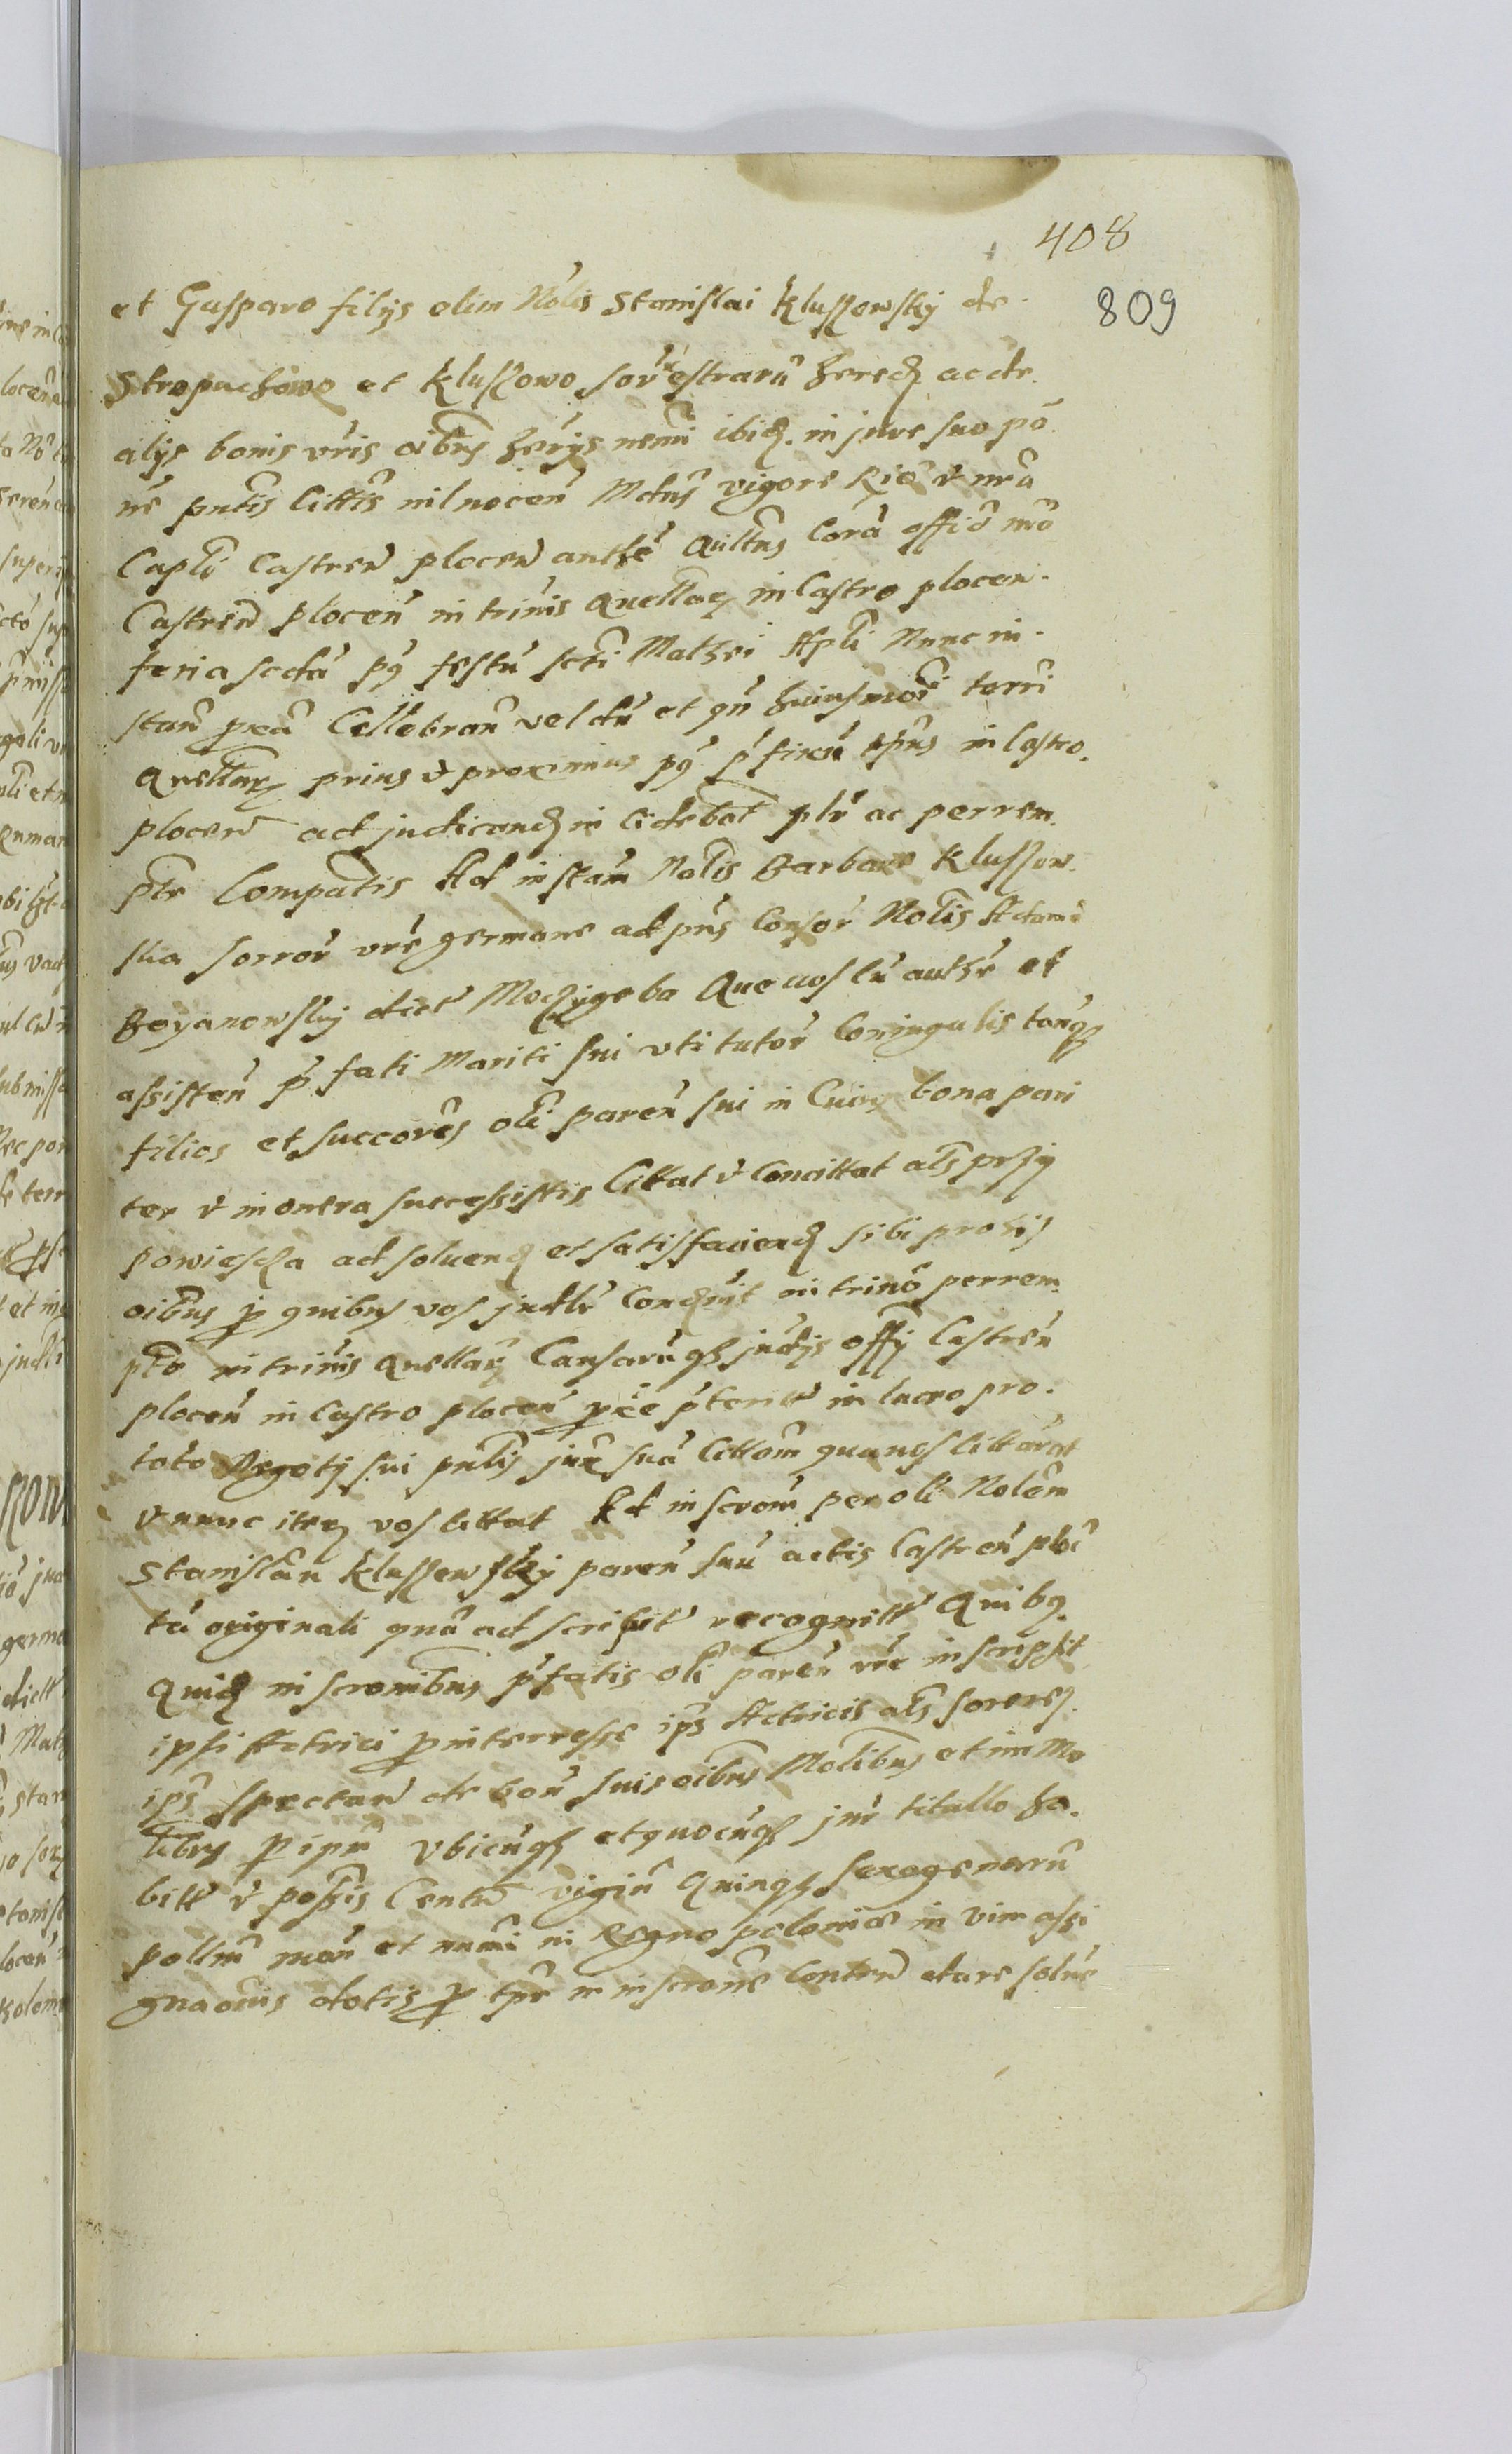 408
809
et Gasparo filijs olim Nolis Stanislai Kluszewskÿ de
Stropuchowo et Kluszowo sorrestrarū hered ac de
alijs bonis vrīs oibus herijs nemī ibid in jure suo po
ne pntis littis nil nocen Mdus vigore Rio & nrā
Capti Castren plocen authe Quitus Corā offio nrō
Castren plocen in trinis Quellarz in Castro plocen
feria scda pº festū scti Mathei Apli Nunc in
stan pxā Cellebran vel dū et qn huiusmoi terri
Quellarz prius & proximius pº pfixū tpus in Castro
plocen ad judicand in cidebat plr ac perrem
ptr Compatis Ad instam Nolis Barbare Kluszew
ska sorror vre germane ad pns Consor Nolis Adami
Boyanowskÿ dict Moczÿgeba Que uos cū authe et
assisten pfati Mariti sui vti tutor Coniugalis tanqz
filios et succores oli paren sui in Cuiq bona pari
ter & in onera successistis Cittat & Concittat als przÿ
powiescza ad soluend et satisfaciend sibi pro his
oibus p quibus vos judlr Condnit in trino perrem
pto in trinis Quellarz Causarūqz judijs offÿ Castren
plocen in Castro plocen pxie pterit in lucro pro
toto Negotÿ sui pntis jux suā Cittom quauos cittarat
& nunc iterz vos cittat Ad inscrom per oli Nolem
Stanislau Kluszewskÿ paren suū actis Castren ploc
tā originali qnā ad scribit recognitt Quibq
Quid in scronibus pfatis oli paren vre inscripsit
ipsi Actrici p interresse ips Actricis als sorores
ips spectan de bon suis oibus Molibus et im Mo
libus p ipū vbicūqz et quocūqz jure titullo ha
bitt & possis Centū viginī Quinqz sexagenarū
polltm mon et numi in Regno poloniae in vim assi
gnaonis dotis p tpe in inscrone Conten dare solue